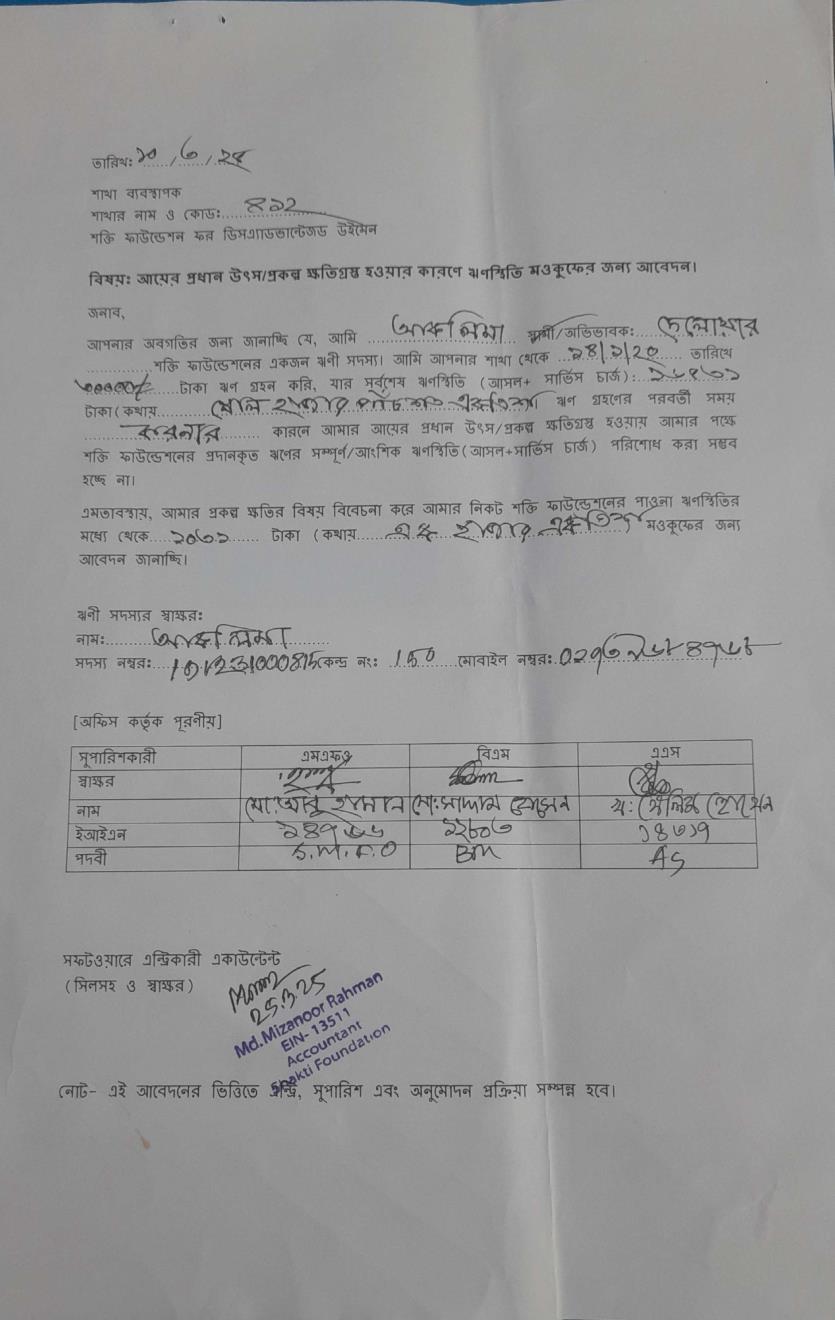 তারিখ: ১০/৩/২৫
শাখা ব্যবস্থাপক
শাখার নাম ও কোড: ৪১২
শক্তি ফাউন্ডেশন ফর ডিসএ্যাডভান্টেজড উইমেন
বিষয়: আয়ের প্রধান উৎস/প্রকল্প ক্ষতিগ্রস্ত হওয়ার কারণে ঋণস্থিতি মওকুফের জন্য আবেদন।
জনাব,
আপনার অবগতির জন্য জানাচ্ছি যে, আমি আকলিমা স্বামী/অভিভাবক: দেলোয়ার
শক্তি ফাউন্ডেশনের একজন ঋণী সদস্য। আমি আপনার শাখা থেকে তারিখে
টাকা ঋণ গ্রহন করি, যার সর্বশেষ ঋণস্থিতি (আসন+ সার্ভিস চার্জ):
টাকা (কথায় ষোল হাজার পাঁচশত একত্রিশ ঋণ গ্রহণের পরবর্তী সময়
করনার কারনে আমার আয়ের প্রধান উৎস/প্রকল্প ক্ষতিগ্রস্ত হওয়ায় আমার পক্ষে
শক্তি ফাউন্ডেশনের প্রদানকৃত ঋণের সম্পূর্ণ/আংশিক ঋণস্থিতি(আসন+সার্ভিস চার্জ) পরিশোধ করা সম্ভব
হচ্ছে না।
এমতাবস্থায়, আমার প্রকল্প ক্ষতির বিষয় বিবেচনা করে আমার নিকট শক্তি ফাউন্ডেশনের পাওনা ঋণস্থিতির
মধ্যে থেকে ১০৩১ টাকা (কথায় এক হাজার একত্রিশ মওকুফের জন্য
আবেদন জানাচ্ছি।
ঋণী সদস্যর স্বাক্ষর:
নাম: আকলিমা
সদস্য নম্বর: কেন্দ্র নং: 150 মোবাইল নম্বর:
[অফিস কর্তৃক পূরণীয়]
সুপারিশকারী এমএফও বিএম এএস
স্বাক্ষর
নাম মো: আবু হাসান মো: সাদ্দাম হোসেন
ইআইএন ১৪৩১
পদবী S.M.F.O BM AS
সফটওয়ারে এন্ট্রিকারী একাউন্টেন্ট
(সিলসহ ও স্বাক্ষর)
25.3.25
Md.Mizanoor Rahman
EIN- 13511
Accountant
Shakti Foundation
নোট- এই আবেদনের ভিত্তিতে এন্ট্রি, সুপারিশ এবং অনুমোদন প্রক্রিয়া সম্পন্ন হবে।